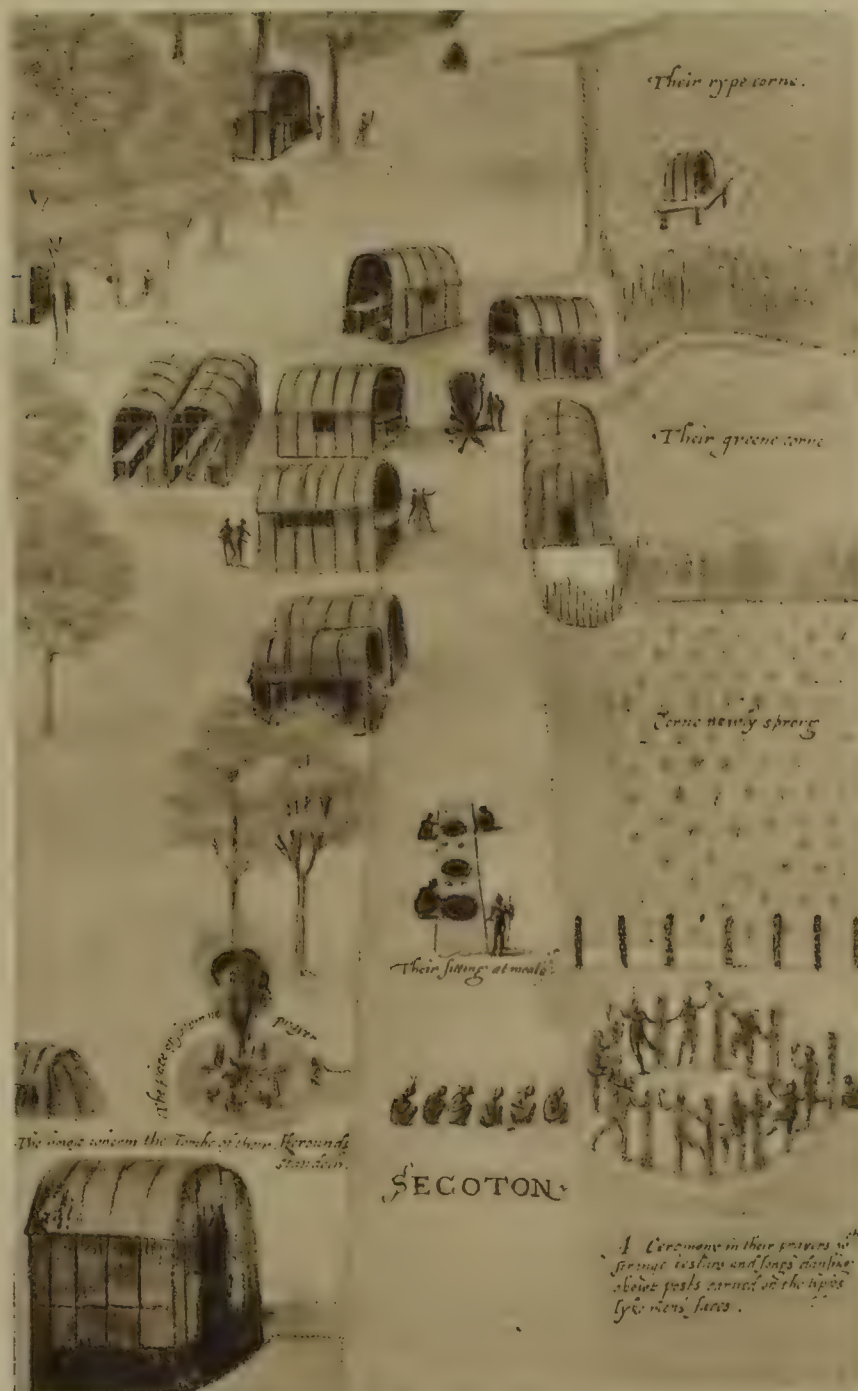 Their rype corne.
Their greene corne
Corne newly sprong
Their sitting at meate
The place of solemne prayer
The house wherin the Tombe of their Herounds
standeth.
SECOTON.
A Ceremony in their prayers wth
strange iestures and songs dansing
abowt posts carued on the topps
lyke mens faces.